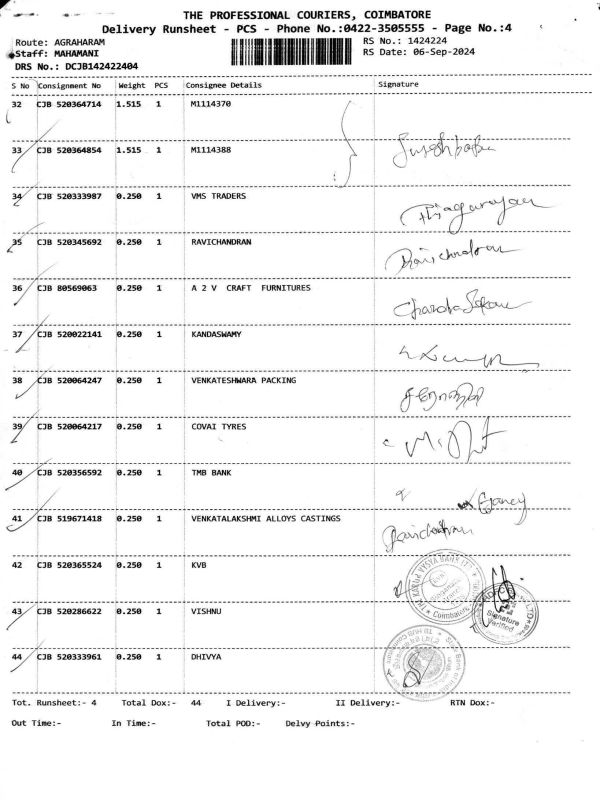 THE PROFESSIONAL COURIERS, COIMBATORE
Delivery Runsheet - PCS - Phone No.:0422-3505555 - Page No.:4
Route: AGRAHARAM RS No.: 1424224
Staff: MAHAMANI RS Date: 06-Sep-2024
DRS No.: DCJB142422404
S No Consignment No Weight PCS Consignee Details Signature
32 CJB 520364714 1.515 1 M1114370
33 CJB 520364854 1.515 1 M1114388 Sureshbabu
34 CJB 520333987 0.250 1 VMS TRADERS Thiagarayan
35 CJB 520345692 0.250 1 RAVICHANDRAN Ravichandran
36 CJB 80569063 0.250 1 A 2 V CRAFT FURNITURES
37 CJB 520022141 0.250 1 KANDASWAMY
38 CJB 520064247 0.250 1 VENKATESHWARA PACKING
39 CJB 520064217 0.250 1 COVAI TYRES
40 CJB 520356592 0.250 1 TMB BANK
41 CJB 519671418 0.250 1 VENKATALAKSHMI ALLOYS CASTINGS
42 CJB 520365524 0.250 1 KVB
THE KARUR VYSYA BANK LTD
Coimbatore
43 CJB 520286622 0.250 1 VISHNU
Signature
Verified
44 CJB 520333961 0.250 1 DHIVYA
Tot. Runsheet:- 4 Total Dox:- 44 I Delivery:- II Delivery:- RTN Dox:-
Out Time:- In Time:- Total POD:- Delvy Points:-